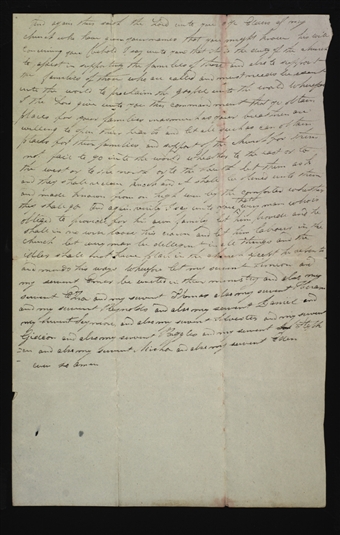 And again thus saith the Lord unto you O ye Elders of my
church who have given your names that you might know his will
concerning you behold I say unto you that it is the duty of the church
to assist in supporting the families of those and also to support
the families of those who are called and must needs be sent
unto the world to proclaim the gospel unto the world Wherefore
I the Lord give unto you this commandment that ye obtain
places for your families inasmuch as your brethren are
willing to open their hearts and let all such as can obtain
places for their families and support of the church for them
not fail to go into the world whether to the east or to
the west or to the north or to the south let them ask
and they shall receive knock and it shall be opened unto them
and made known from on high even by the comforter whither
they shall go And again verily I say unto you that every man whose
oblige to provide for his own family let him provide and he
shall in no wise loose his crown and let him labour in the
church let every man be diligent in all things and the
idler shall not have place in the church except he repents
and mends his ways Wherefore let my servant Simeon and
my servant Emer be united in their ministry and also my
servant Ezra and my servant Thomas also my servant Hiram
and my servant Reynolds and also my servant Daniel and
my servant Seymour and also my servant Sylvester and my servant
Gideon and also my servant Ruggles and my servant Steph
en and also my servant Micha and also my servant Eden
even so amen